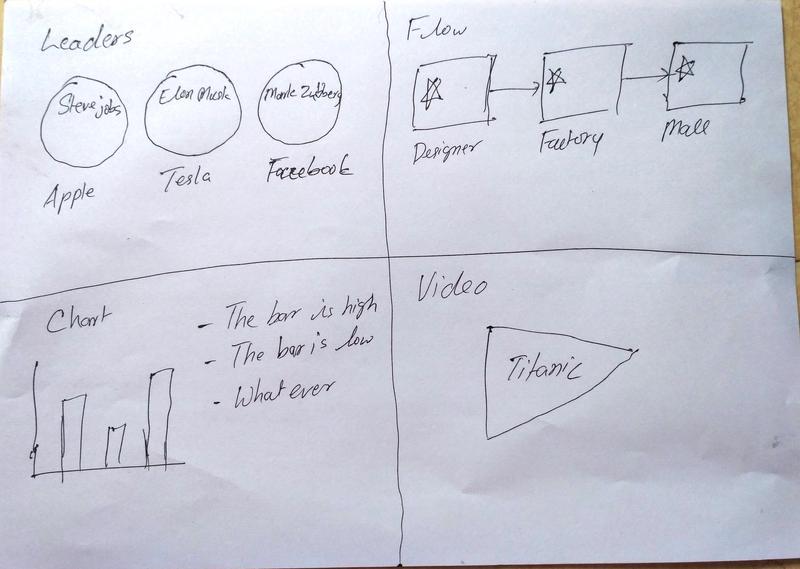 Leaders
Steve jobs
Elon Musk
Apple
Tesla
Facebook
Flow
Designer
Factory
Mall
Chart
- The bar is high
- The bar is low
- Whatever
Video
Titanic